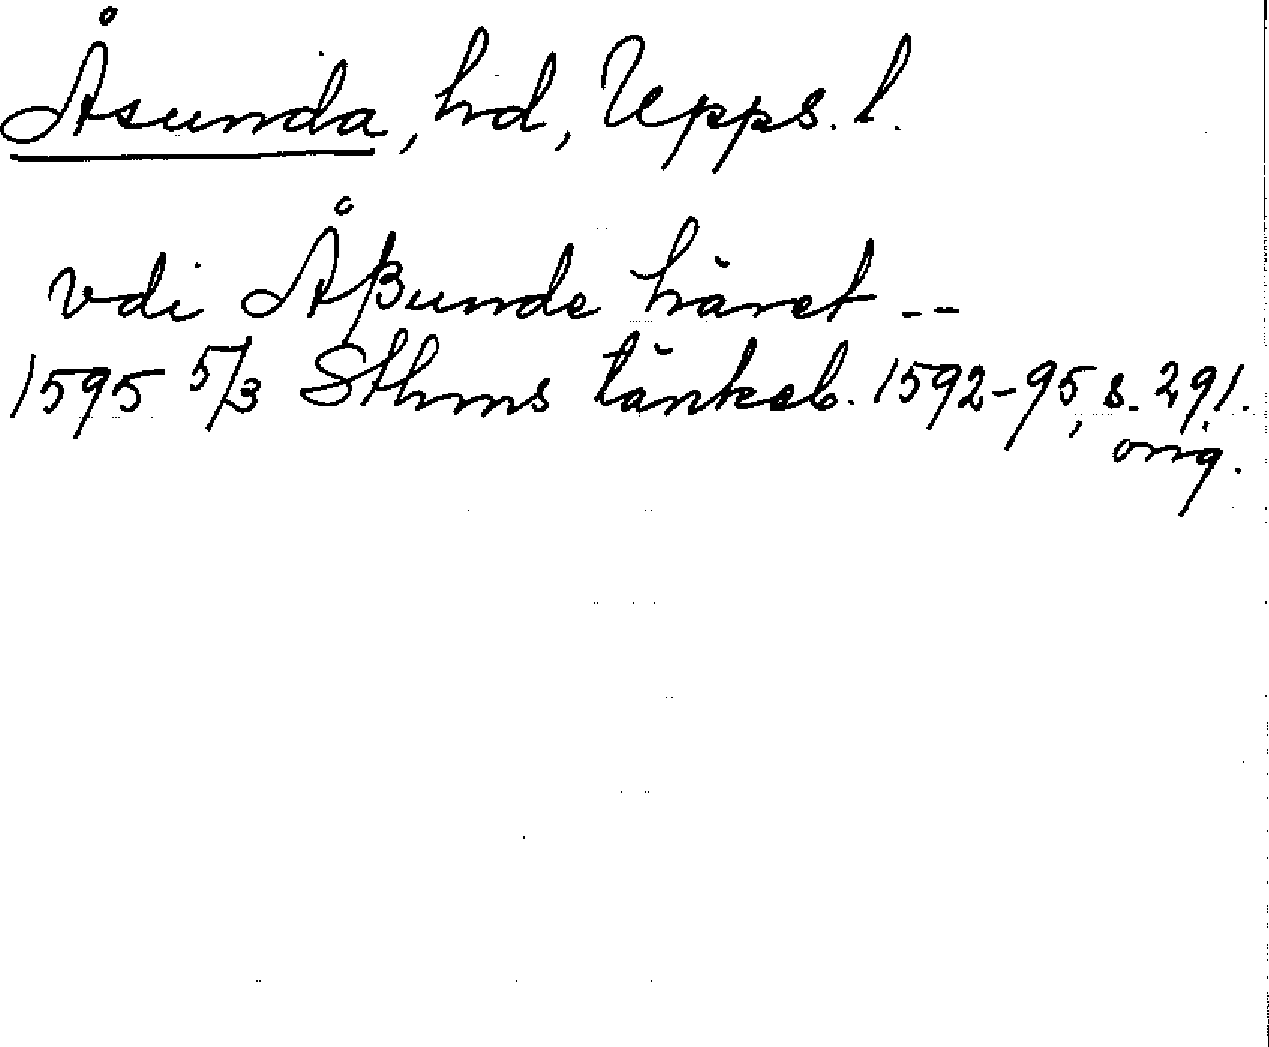 Åsunda, hd, Upps. l.
vdi Åßunde häret --
1595 5/3 Sthms tänkeb. 1592-95, s. 291.
orig.